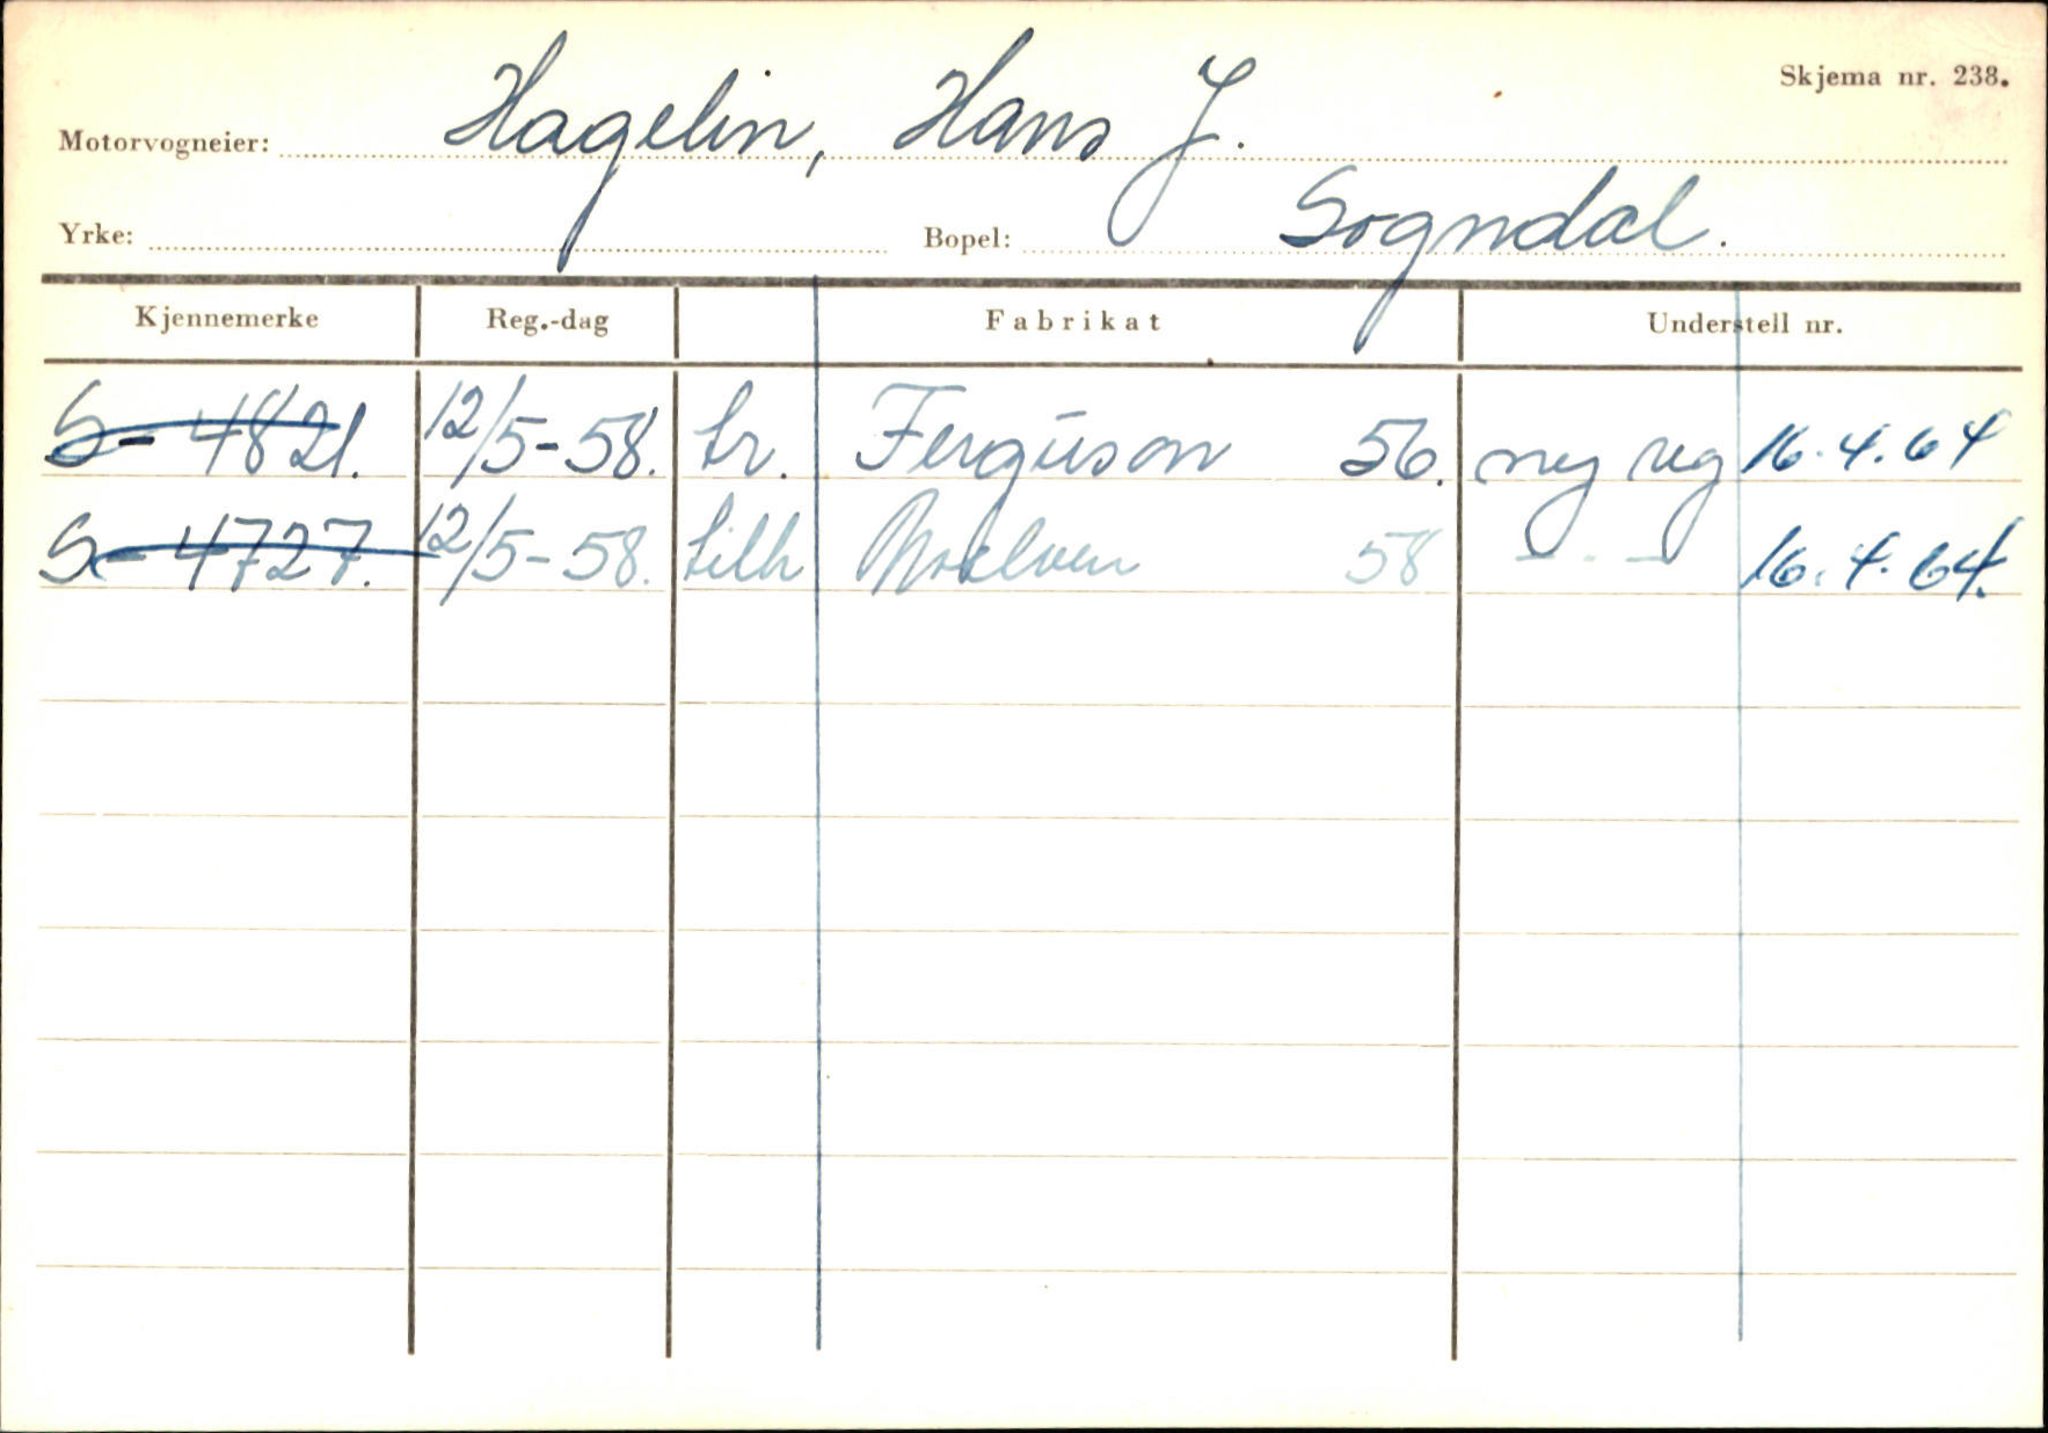 Skjema nr. 238.
Motorvogneier: Hagelin, Hans J.
Yrke: Bopel: Sogndal.
Kjennemerke Reg.-dag Fabrikat Understell nr.
S-4821. 12/5-58. tr. Ferguson 56. ny reg 16.4.64
S-4727. 12/5-58. tilh Moelven 58 - - - 16.4.64.